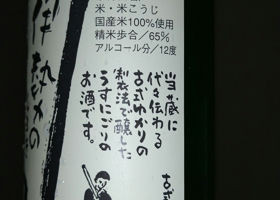 米・米こうじ
国産米100%使用
精米歩合/65%
アルコール分/12度
当蔵に
代々伝わる
古式ゆかりの
製法で醸した
うすにごりの
お酒です。
伊勢ゆかりの
古式